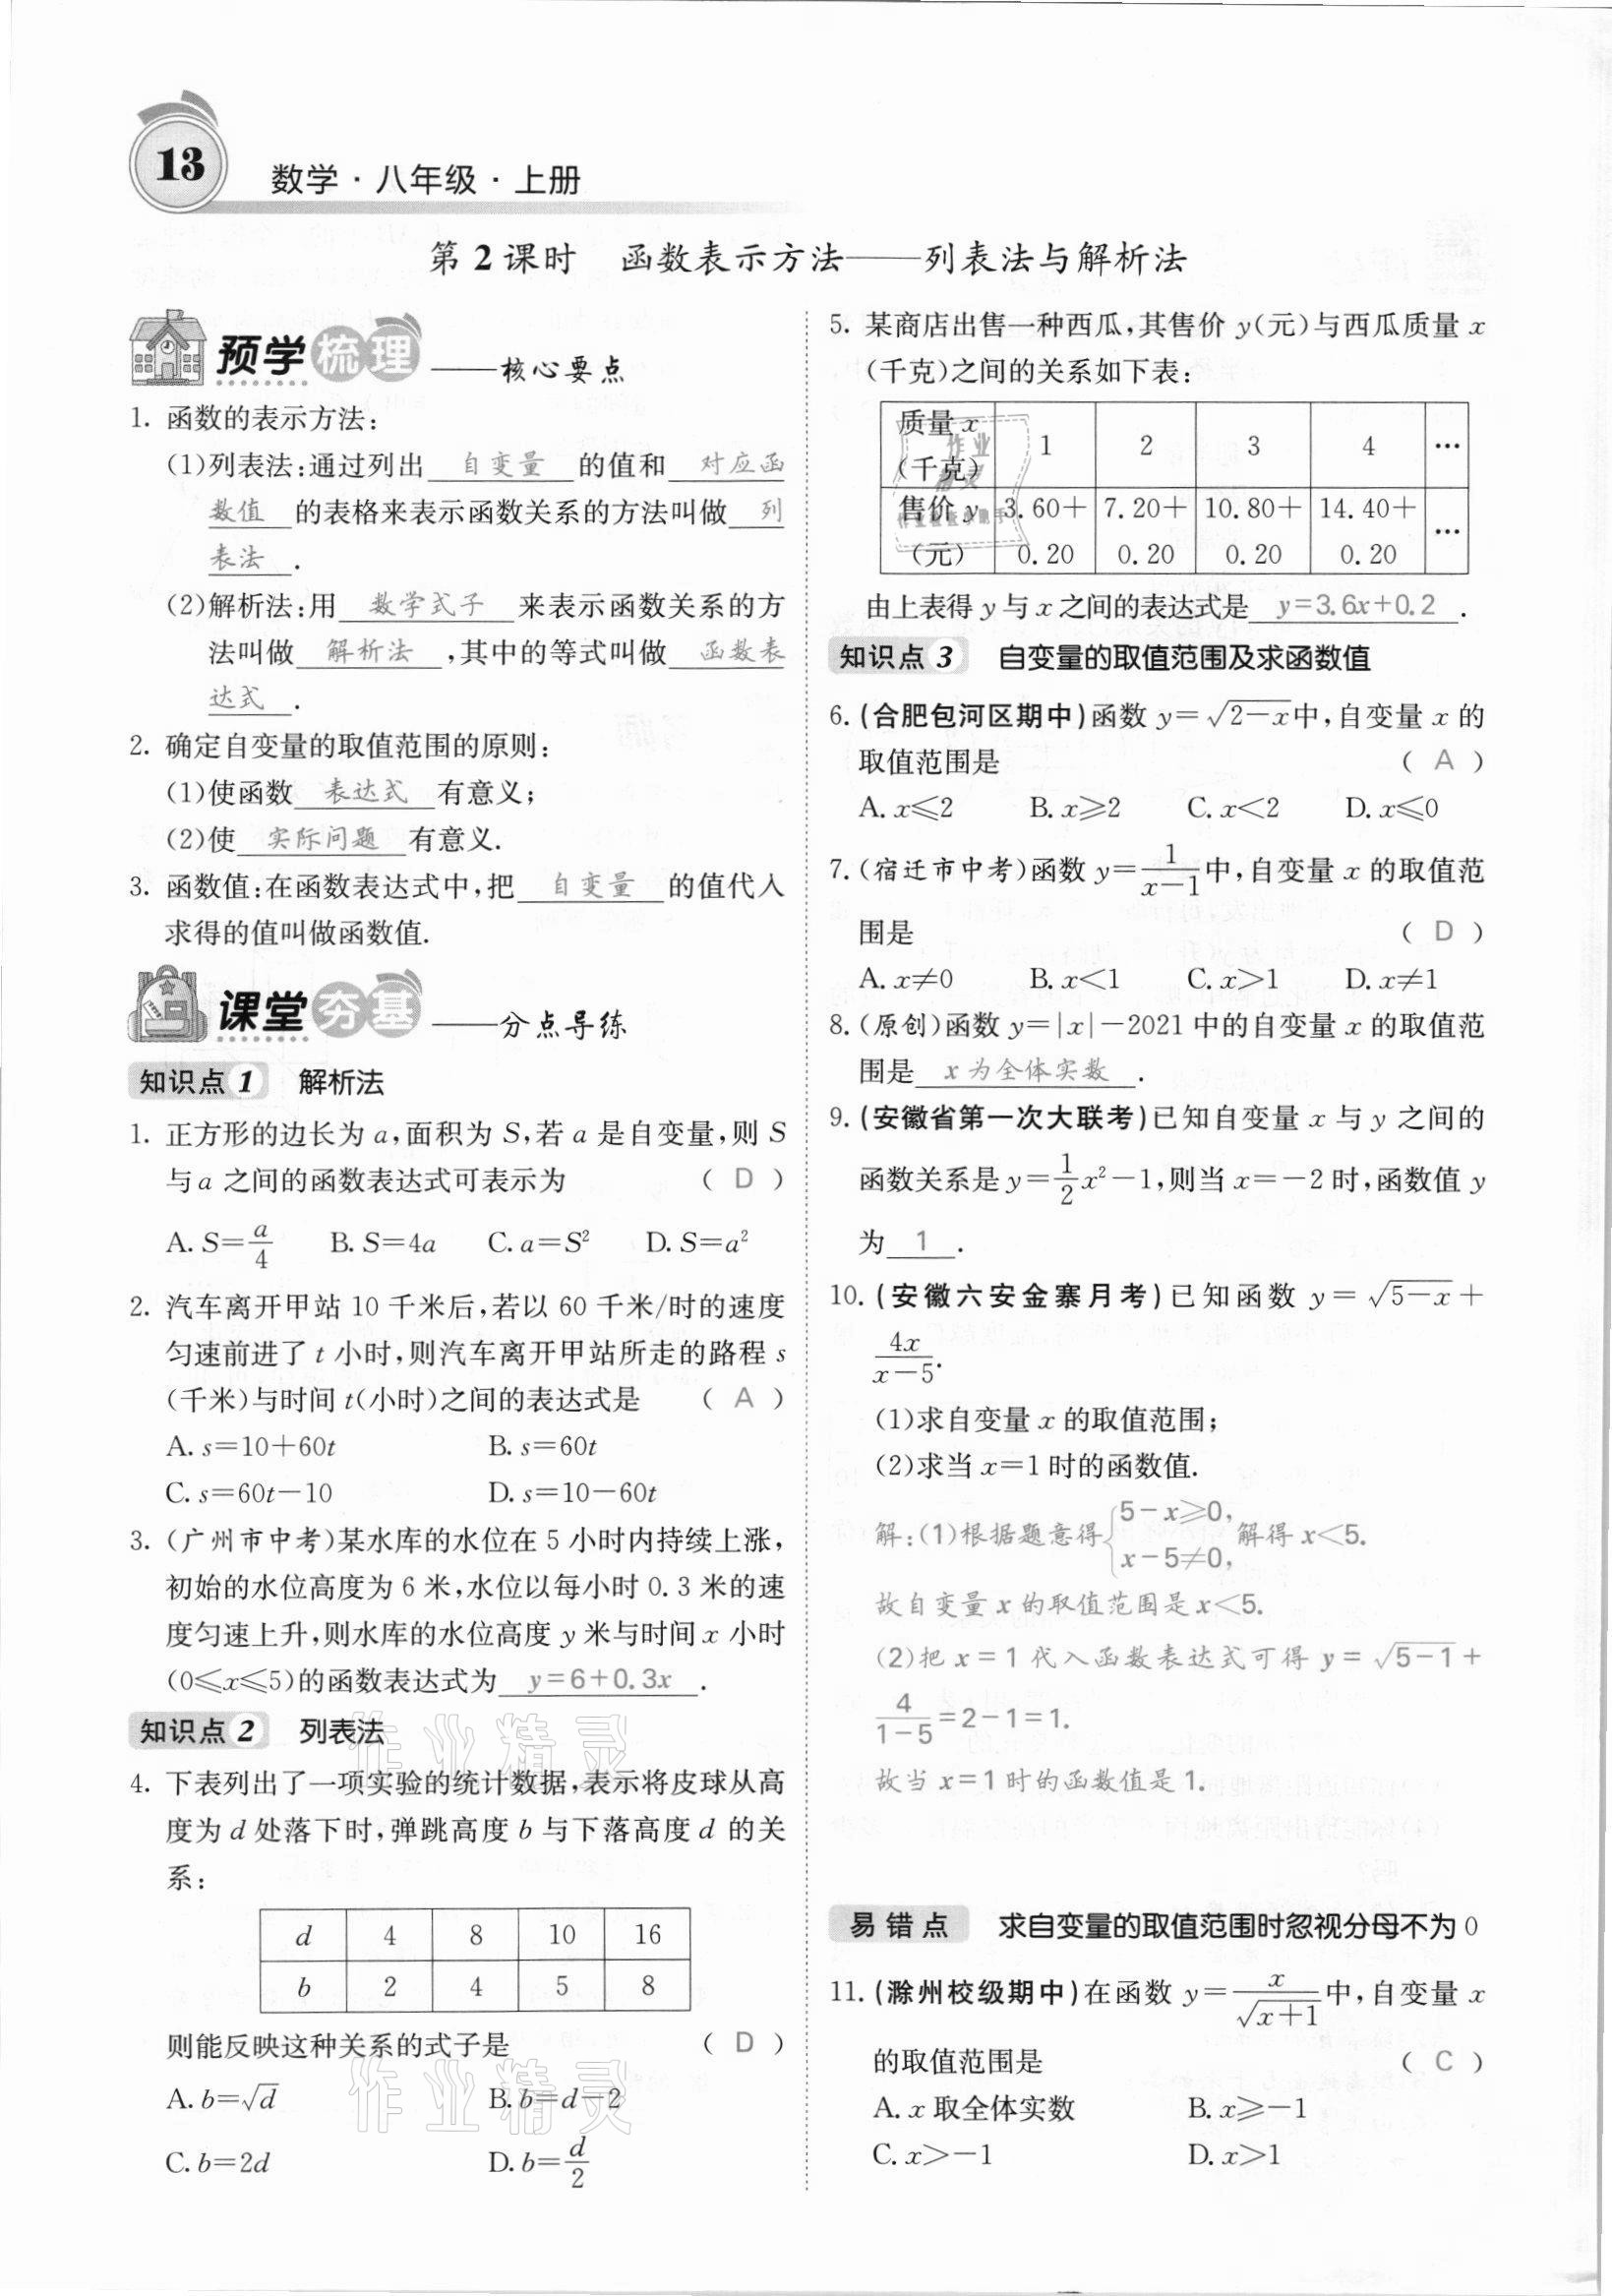 13
数学·八年级·上册
第2课时 函数表示方法——列表法与解析法
预学梳理——核心要点
1. 函数的表示方法:
(1)列表法:通过列出 自变量 的值和 对应函
数值 的表格来表示函数关系的方法叫做 列
表法 .
(2)解析法:用 数学式子 来表示函数关系的方
法叫做 解析法 ,其中的等式叫做 函数表
达式 .
2. 确定自变量的取值范围的原则:
(1)使函数 表达式 有意义;
(2)使 实际问题 有意义.
3. 函数值:在函数表达式中,把 自变量 的值代入
求得的值叫做函数值.
课堂夯基——分点导练
知识点1 解析法
1. 正方形的边长为a,面积为S,若a是自变量,则S
与a之间的函数表达式可表示为 ( D )
A. S=a/4 B. S=4a C. a=S² D. S=a²
2. 汽车离开甲站10千米后,若以60千米/时的速度
匀速前进了t小时,则汽车离开甲站所走的路程s
(千米)与时间t(小时)之间的表达式是 ( A )
A. s=10+60t B. s=60t
C. s=60t-10 D. s=10-60t
3. (广州市中考)某水库的水位在5小时内持续上涨,
初始的水位高度为6米,水位以每小时0.3米的速
度匀速上升,则水库的水位高度y米与时间x小时
(0≤x≤5)的函数表达式为 y=6+0.3x .
知识点2 列表法
4. 下表列出了一项实验的统计数据,表示将皮球从高
度为d处落下时,弹跳高度b与下落高度d的关
系:
d 4 8 10 16
b 2 4 5 8
则能反映这种关系的式子是 ( D )
A. b=√d B. b=d-2
C. b=2d D. b=d/2
5. 某商店出售一种西瓜,其售价y(元)与西瓜质量x
(千克)之间的关系如下表:
质量x(千克) 1 2 3 4 …
售价y(元) 3.60+0.20 7.20+0.20 10.80+0.20 14.40+0.20 …
由上表得y与x之间的表达式是 y=3.6x+0.2 .
知识点3 自变量的取值范围及求函数值
6. (合肥包河区期中)函数y=√(2-x)中,自变量x的
取值范围是 ( A )
A. x≤2 B. x≥2 C. x<2 D. x≤0
7. (宿迁市中考)函数y=1/(x-1)中,自变量x的取值范
围是 ( D )
A. x≠0 B. x<1 C. x>1 D. x≠1
8. (原创)函数y=|x|-2021中的自变量x的取值范
围是 x为全体实数 .
9. (安徽省第一次大联考)已知自变量x与y之间的
函数关系是y=1/2x²-1,则当x=-2时,函数值y
为 1 .
10. (安徽六安金寨月考)已知函数y=√(5-x)+
4x/(x-5).
(1)求自变量x的取值范围;
(2)求当x=1时的函数值.
解:(1)根据题意得{5-x≥0, x-5≠0, 解得x<5.
故自变量x的取值范围是x<5.
(2)把x=1代入函数表达式可得y=√(5-1)+
4/(1-5)=2-1=1.
故当x=1时的函数值是1.
易错点 求自变量的取值范围时忽视分母不为0
11. (滁州校级期中)在函数y=x/√(x+1)中,自变量x
的取值范围是 ( C )
A. x取全体实数 B. x≥-1
C. x>-1 D. x>1
作业精灵
作业精灵